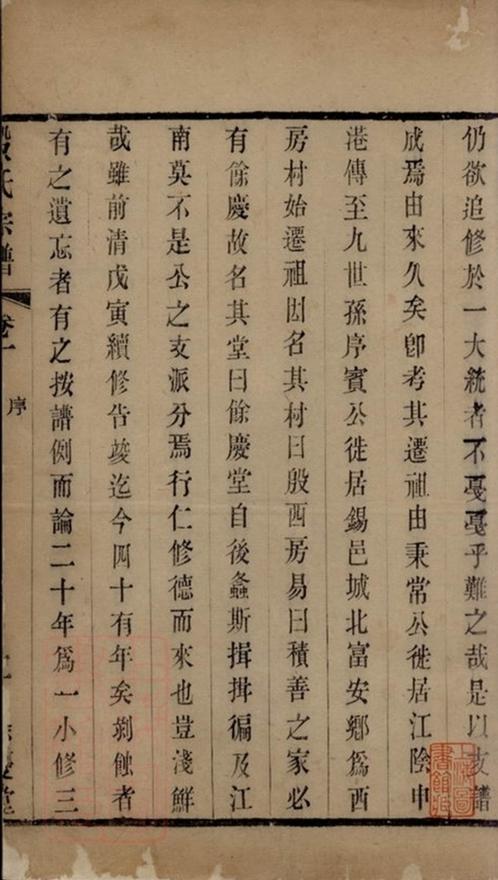 仍欲追修於一大統者不戞戞乎難之哉是以支譜
成焉由來久矣卽考其遷祖由秉常公徙居江陰申
港傳至九世孫序賓公徙居錫邑城北富安鄉爲西
房村始遷祖因名其村曰殷西房易曰積善之家必
有餘慶故名其堂曰餘慶堂自後螽斯揖揖徧及江
南莫不是公之支派分焉行仁修德而來也豈淺鮮
哉雖前清戊寅續修告竣迄今四十有年矣剝蝕者
有之遺忘者有之按譜例而論二十年爲一小修三
殷氏宗譜 卷一 序
上海圖書館藏